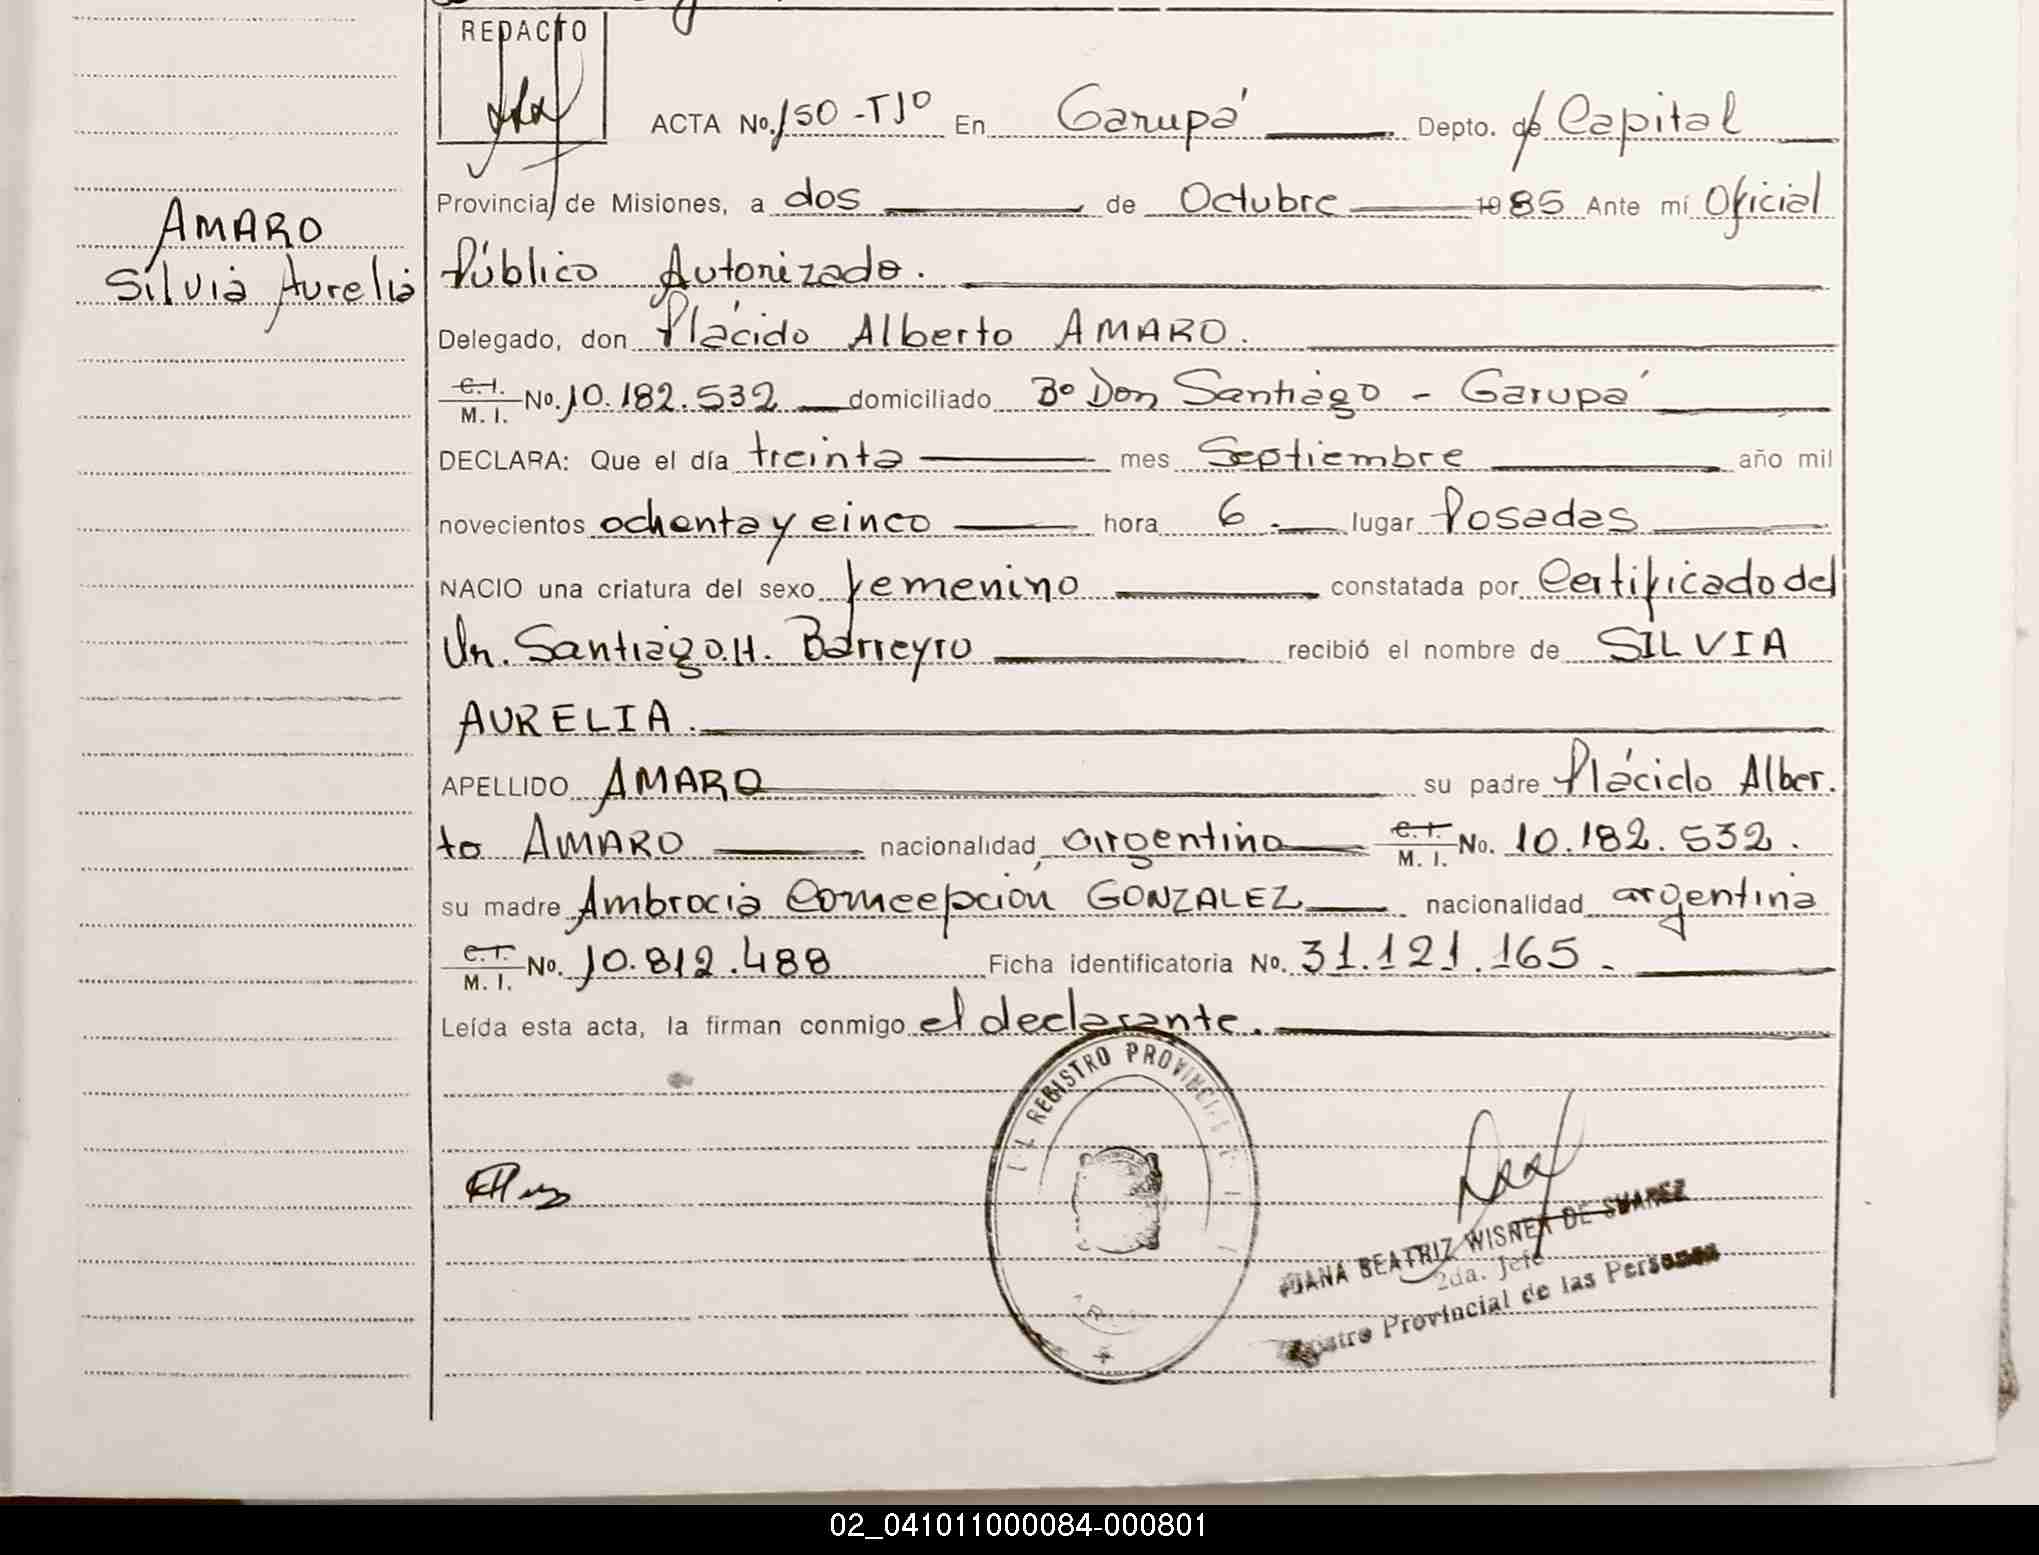 REDACTO
ACTA No. 150 -TIº En Garupá Depto. de Capital
Provincia de Misiones, a dos de Octubre 1985 Ante mí Oficial
AMARO
Silvia Aurelia
Público Autorizado.
Delegado, don Plácido Alberto AMARO.
C.I. M. I. No. 10.182.532 domiciliado Bº Don Santiago - Garupá
DECLARA: Que el día treinta mes Septiembre año mil
novecientos ochenta y cinco hora 6.- lugar Posadas
NACIO una criatura del sexo femenino constatada por Certificado del
Dr. Santiago H. Barreyro recibió el nombre de SILVIA
AURELIA.
APELLIDO AMARO su padre Plácido Alber.
to AMARO nacionalidad argentina C.I. M. I. No. 10.182.532.
su madre Ambrocia Concepción GONZALEZ nacionalidad argentina
C.I. M. I. No. 10.812.488 Ficha identificatoria No. 31.121.165.-
Leída esta acta, la firman conmigo el declarante.
REGISTRO PROVINCIAL
JUANA BEATRIZ WISNER DE SUAREZ
2da. Jefe
Registro Provincial de las Personas
02_041011000084-000801